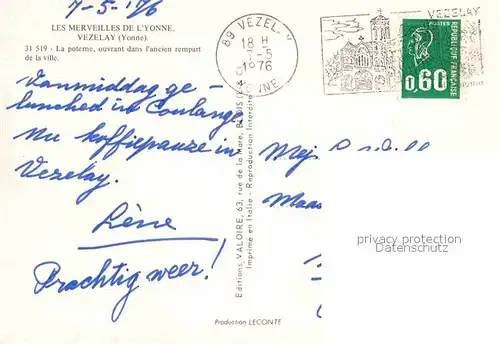 7-5-1976
LES MERVEILLES DE L'YONNE.
VEZELAY (Yonne).
31 519 - La poterne, ouvrant dans l'ancien rempart
de la ville.
Vanmiddag ge-
lunched in Coulange
Nu koffiepauze in
Vezelay.
Lène
Prachtig weer!
Production LECONTE
Editions VALOIRE, 63, rue de la Mare, BLOIS
Imprimé en Italie - Reproduction Interdite
89 VEZELAY
18 H
-5
1976
YONNE
VEZELAY
POSTES
0,60
REPUBLIQUE FRANÇAISE
Mej.
Maas
privacy protection
Datenschutz